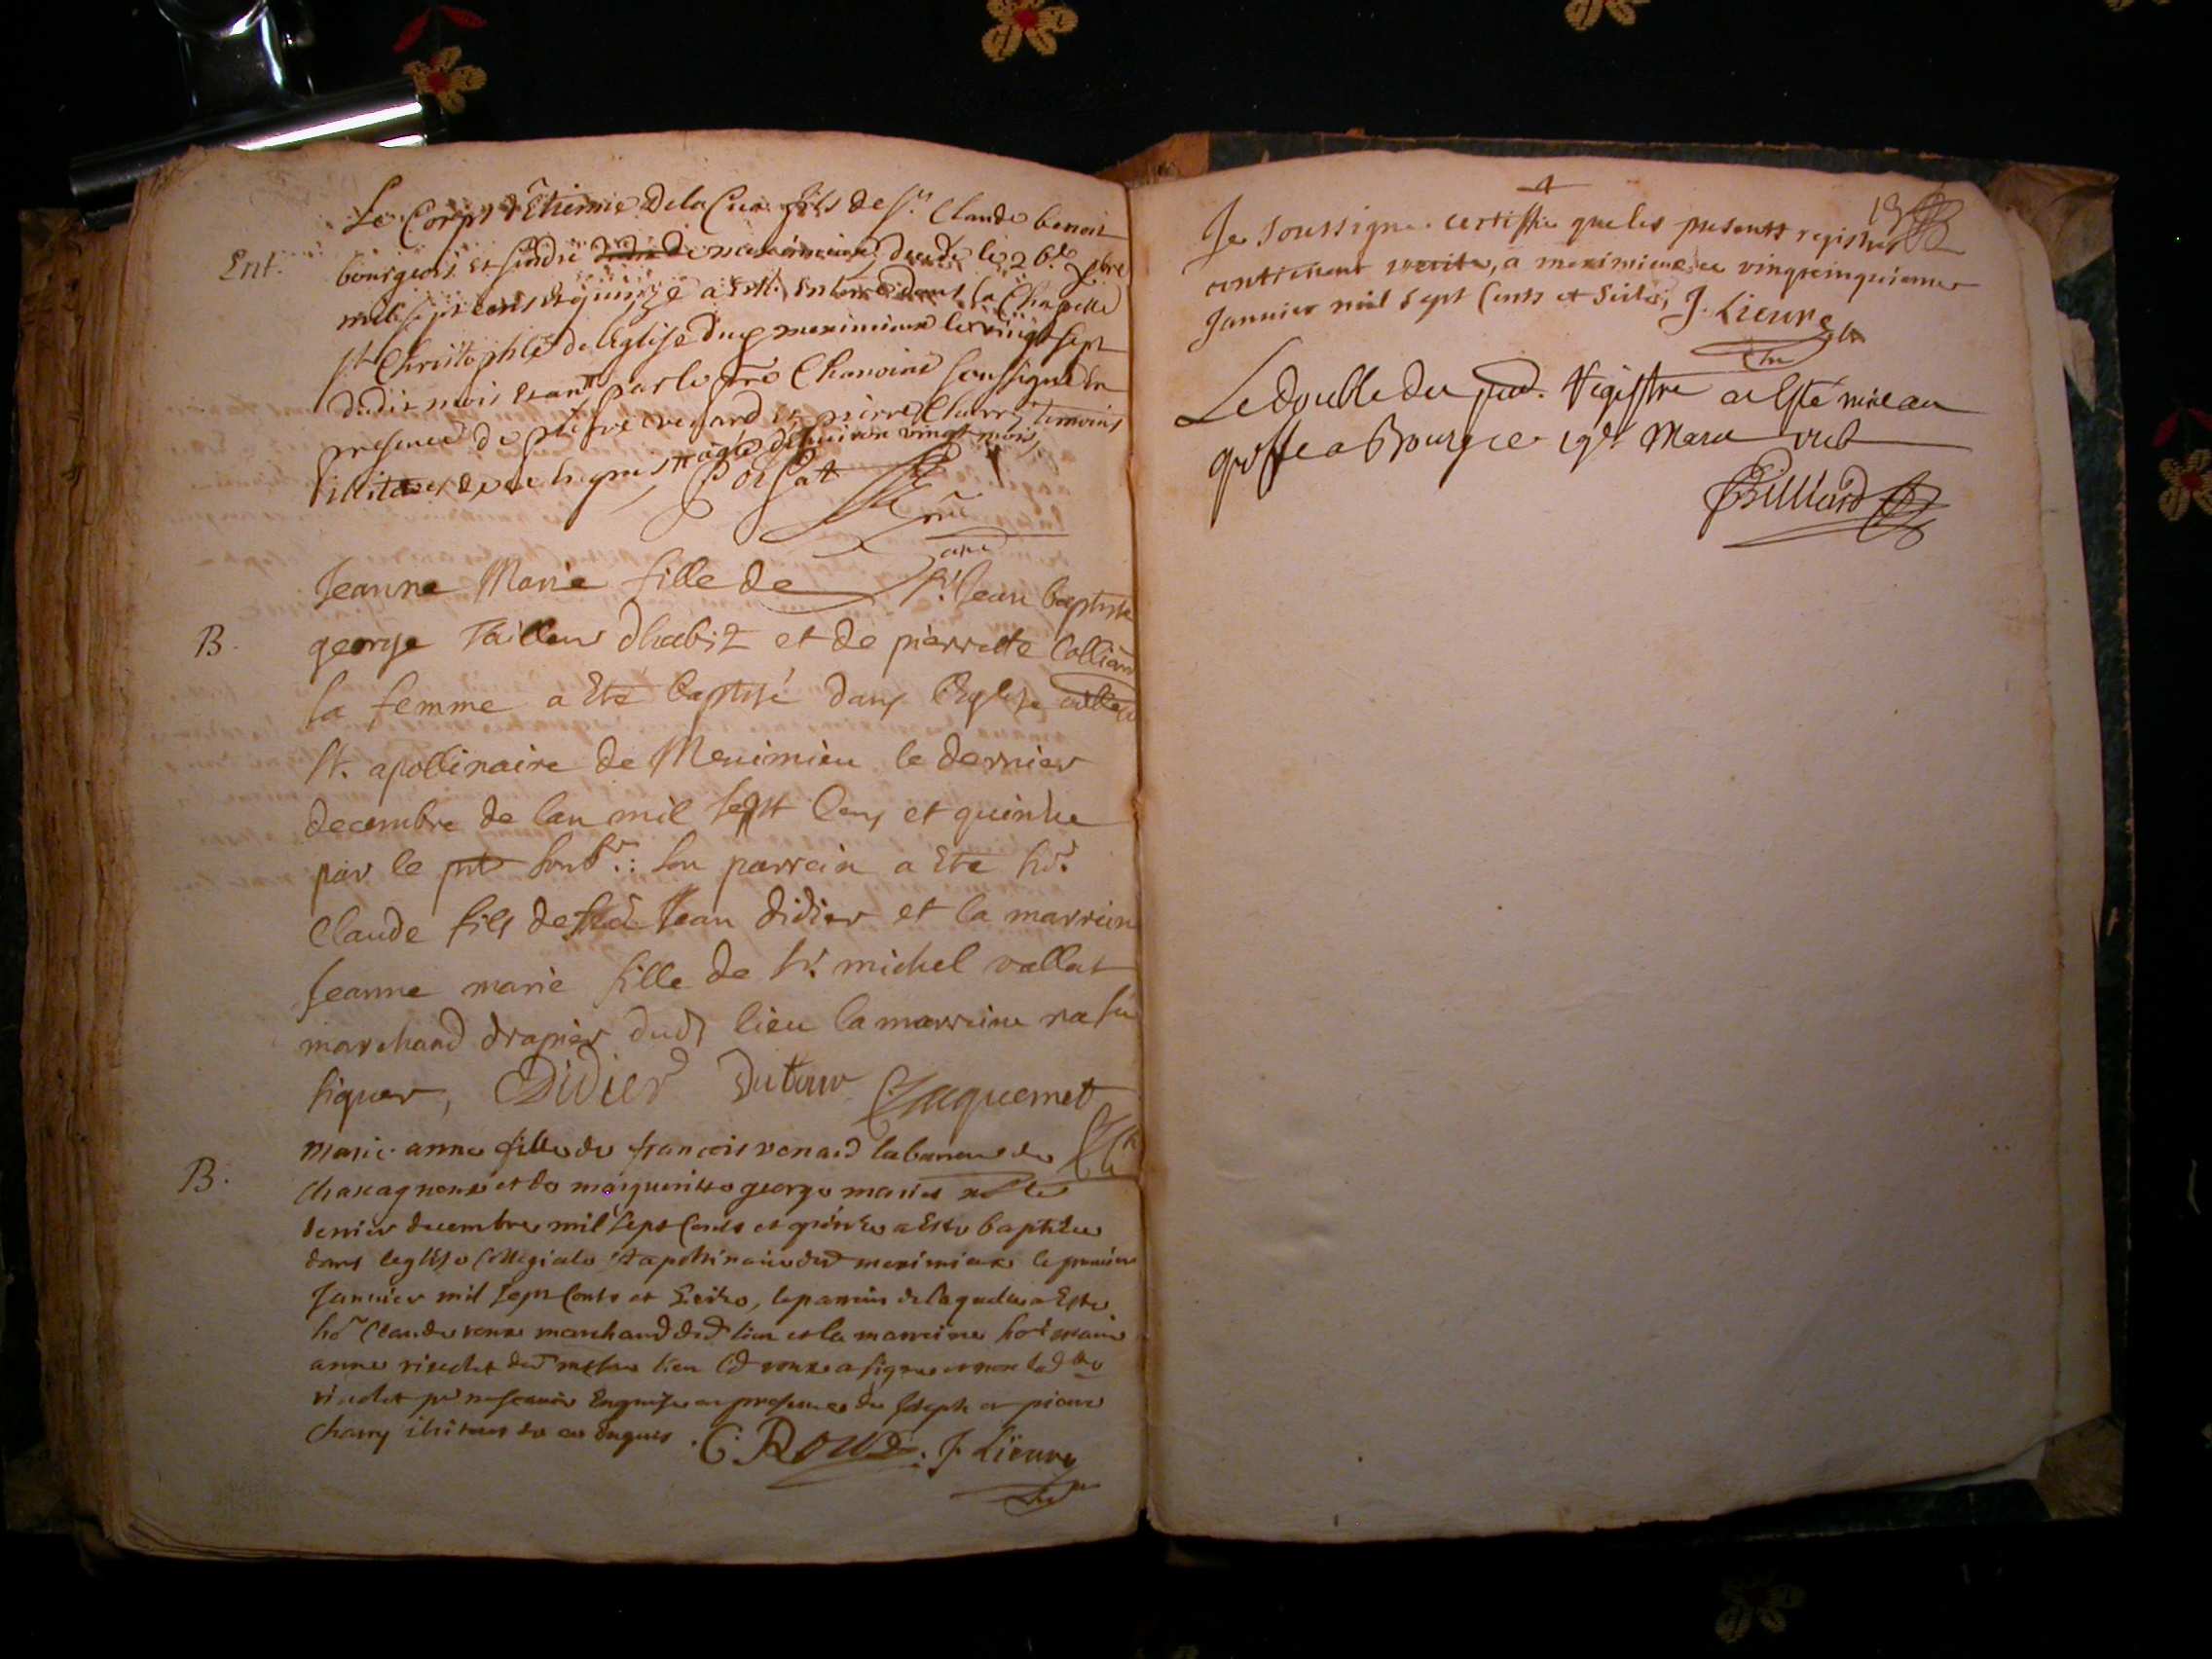 Ent.
Le Corps d'Etienne De la Cua fils de Sr. Claude benoit
bourgeois et sindic de meximieux decede le 26e xbre
mille sept cens et quinze a esté enterré dans la Chapelle
St Christophle de l'eglise dud meximieux le vingt sept
dudit mois et an par le pre Chanoine soussigné en
presence de pierre renard et pierre Charry temoins
illiteres de ce enquis agé d'environ vingt mois
Jeanne Marie fille de Sr. Jean baptiste
B.
george Tailleur dhabit et de pierrette Colliard
sa femme a ete baptisé dans l'Eglise
St. apollinaire de Meximieu le dernier
decembre de lan mil sept cens et quinze
par le pnt soubs.: son parrein a ete hr.
Claude fils de Jean didier et la marrein
Jeanne marie fille de sr. michel vallat
marchand drapier dudt lieu la marreine na su
signer, Didier Dutour Jacquemet
B.
marie anne fille de françois renard laboureur de
et de marguerite george mariés
dernier decembre mil sept cents et quinze a esté baptizée
dans leglise Collegiale St apollinaire dud meximieux le premier
Janvier mil sept cents et seize, le parrain de laquelle a esté
ho Claude roux marchand dud lieu et la marreine ho marie
anne rivollet dud mesme lieu led roux a signé et non lad
rivollet pr ne scavoir enquise en presence de Joseph et pierre
Charry illiteres de ce enquis. C. Roux. J. Lieure
19
Je soussigné certiffie que les presents registres
contiennent verité, a meximieux ce vingtcinquieme
Janvier mil sept cents et seize, J. Lieure
Le double du pnt. Registre a esté mis au
greffe a Bourg ce 19e Mars
Billiard